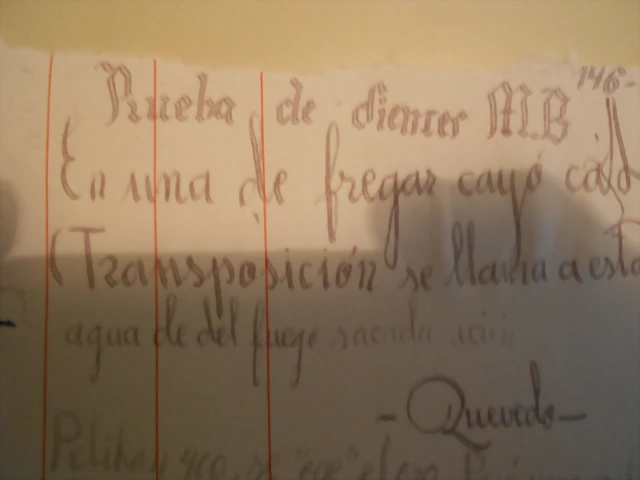 Prueba de M.B. 146-
En una de fregar cayó
(Transposición se llama a esta
agua de del fuego sacada
- Quevedo -